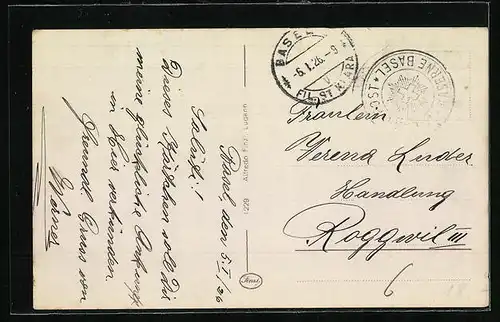 Basel, den 5. I / 26
Salüt!
Dieses Kärtchen soll Dir
meine glückliche
in hier verkünden.
Freundl. Gruss von
Werner
1229 Alfredo Finzi Lugano
BASEL
6.I.26.-9
FIL. ST. KLARA
KASERNE BASEL
POST
Fräulein
Verena Luder
Handlung
Roggwil III
6